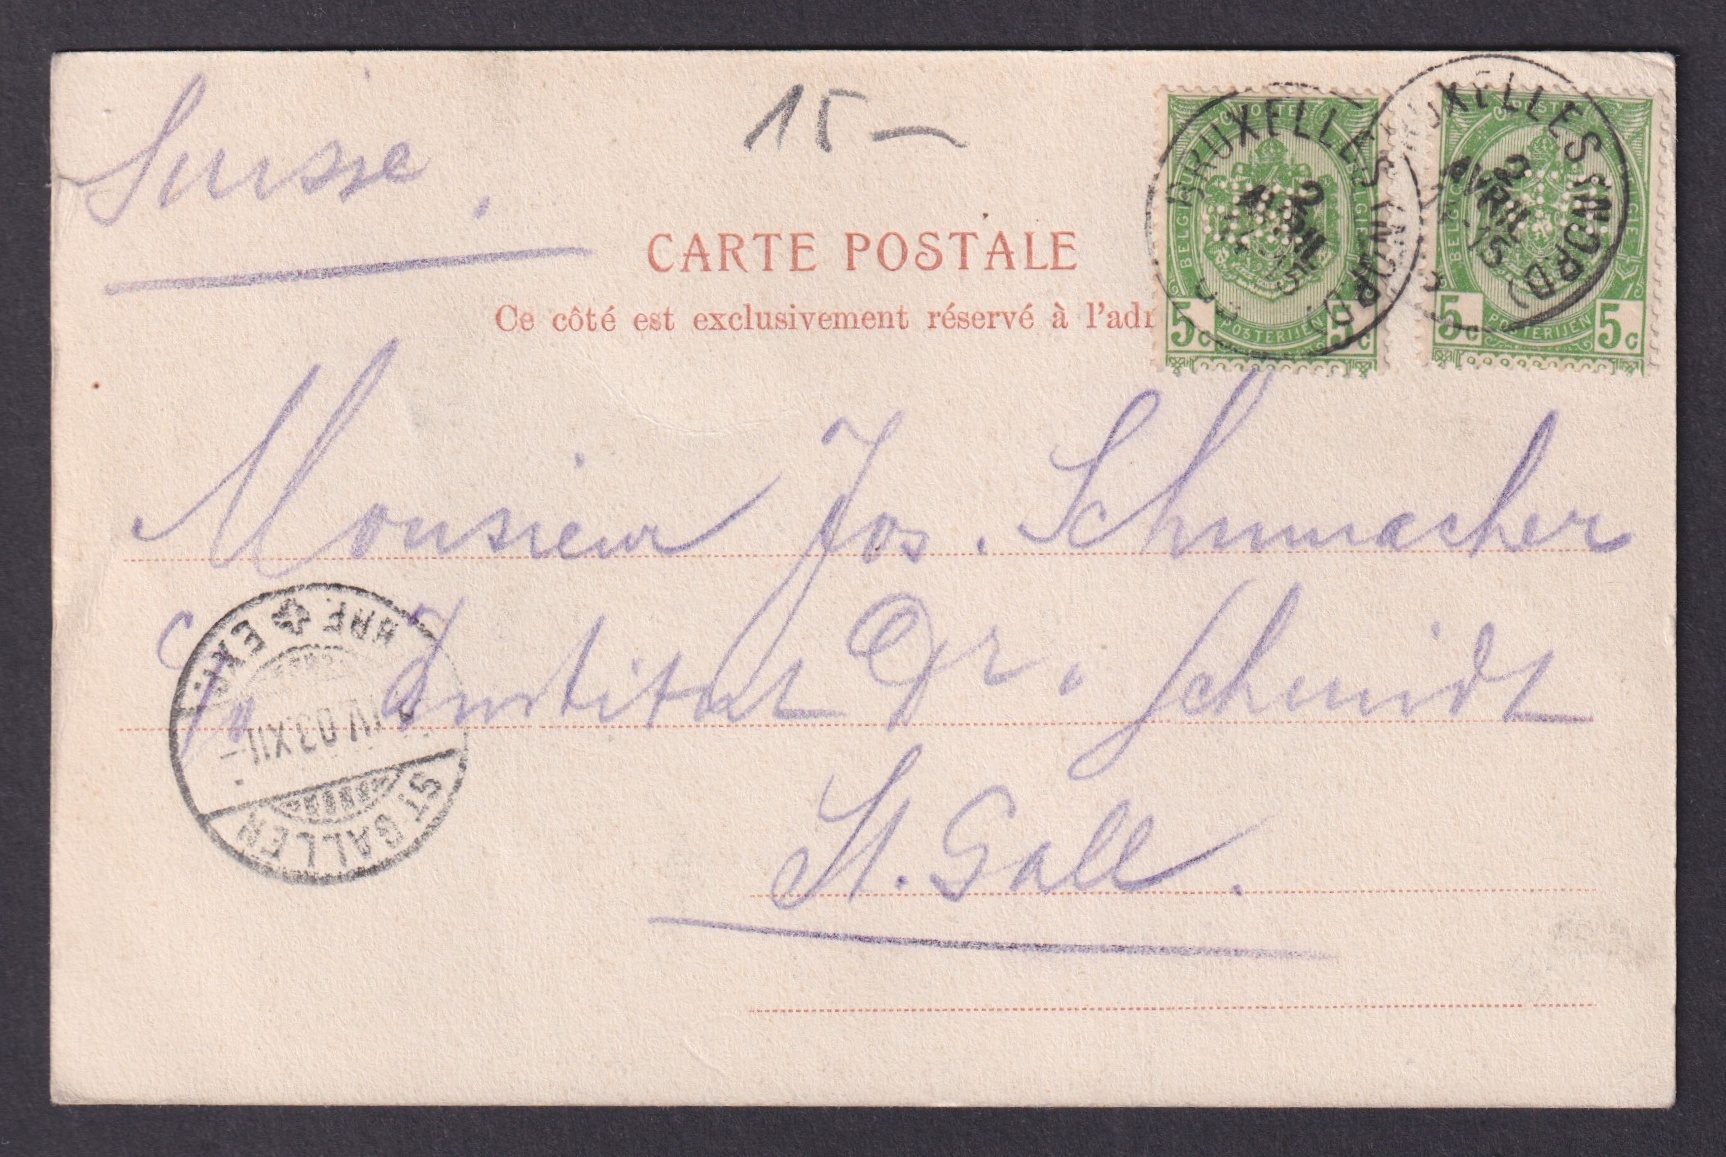 Suisse.
15—
CARTE POSTALE
Ce côté est exclusivement réservé à l'adr
BRUXELLES (NORD)
2
AVRIL
15
BRUXELLES (NORD)
2
AVRIL
15
POSTES
BELGIQUE
BELGIË
5c 5c
POSTERIJEN
POSTES
BELGIQUE
BELGIË
5c 5c
POSTERIJEN
Monsieur Jos. Schumacher
c/o Institut Dr. Schmidt
St. Gall.
ST. GALLEN
BRF. EXP.
IV.03.XII